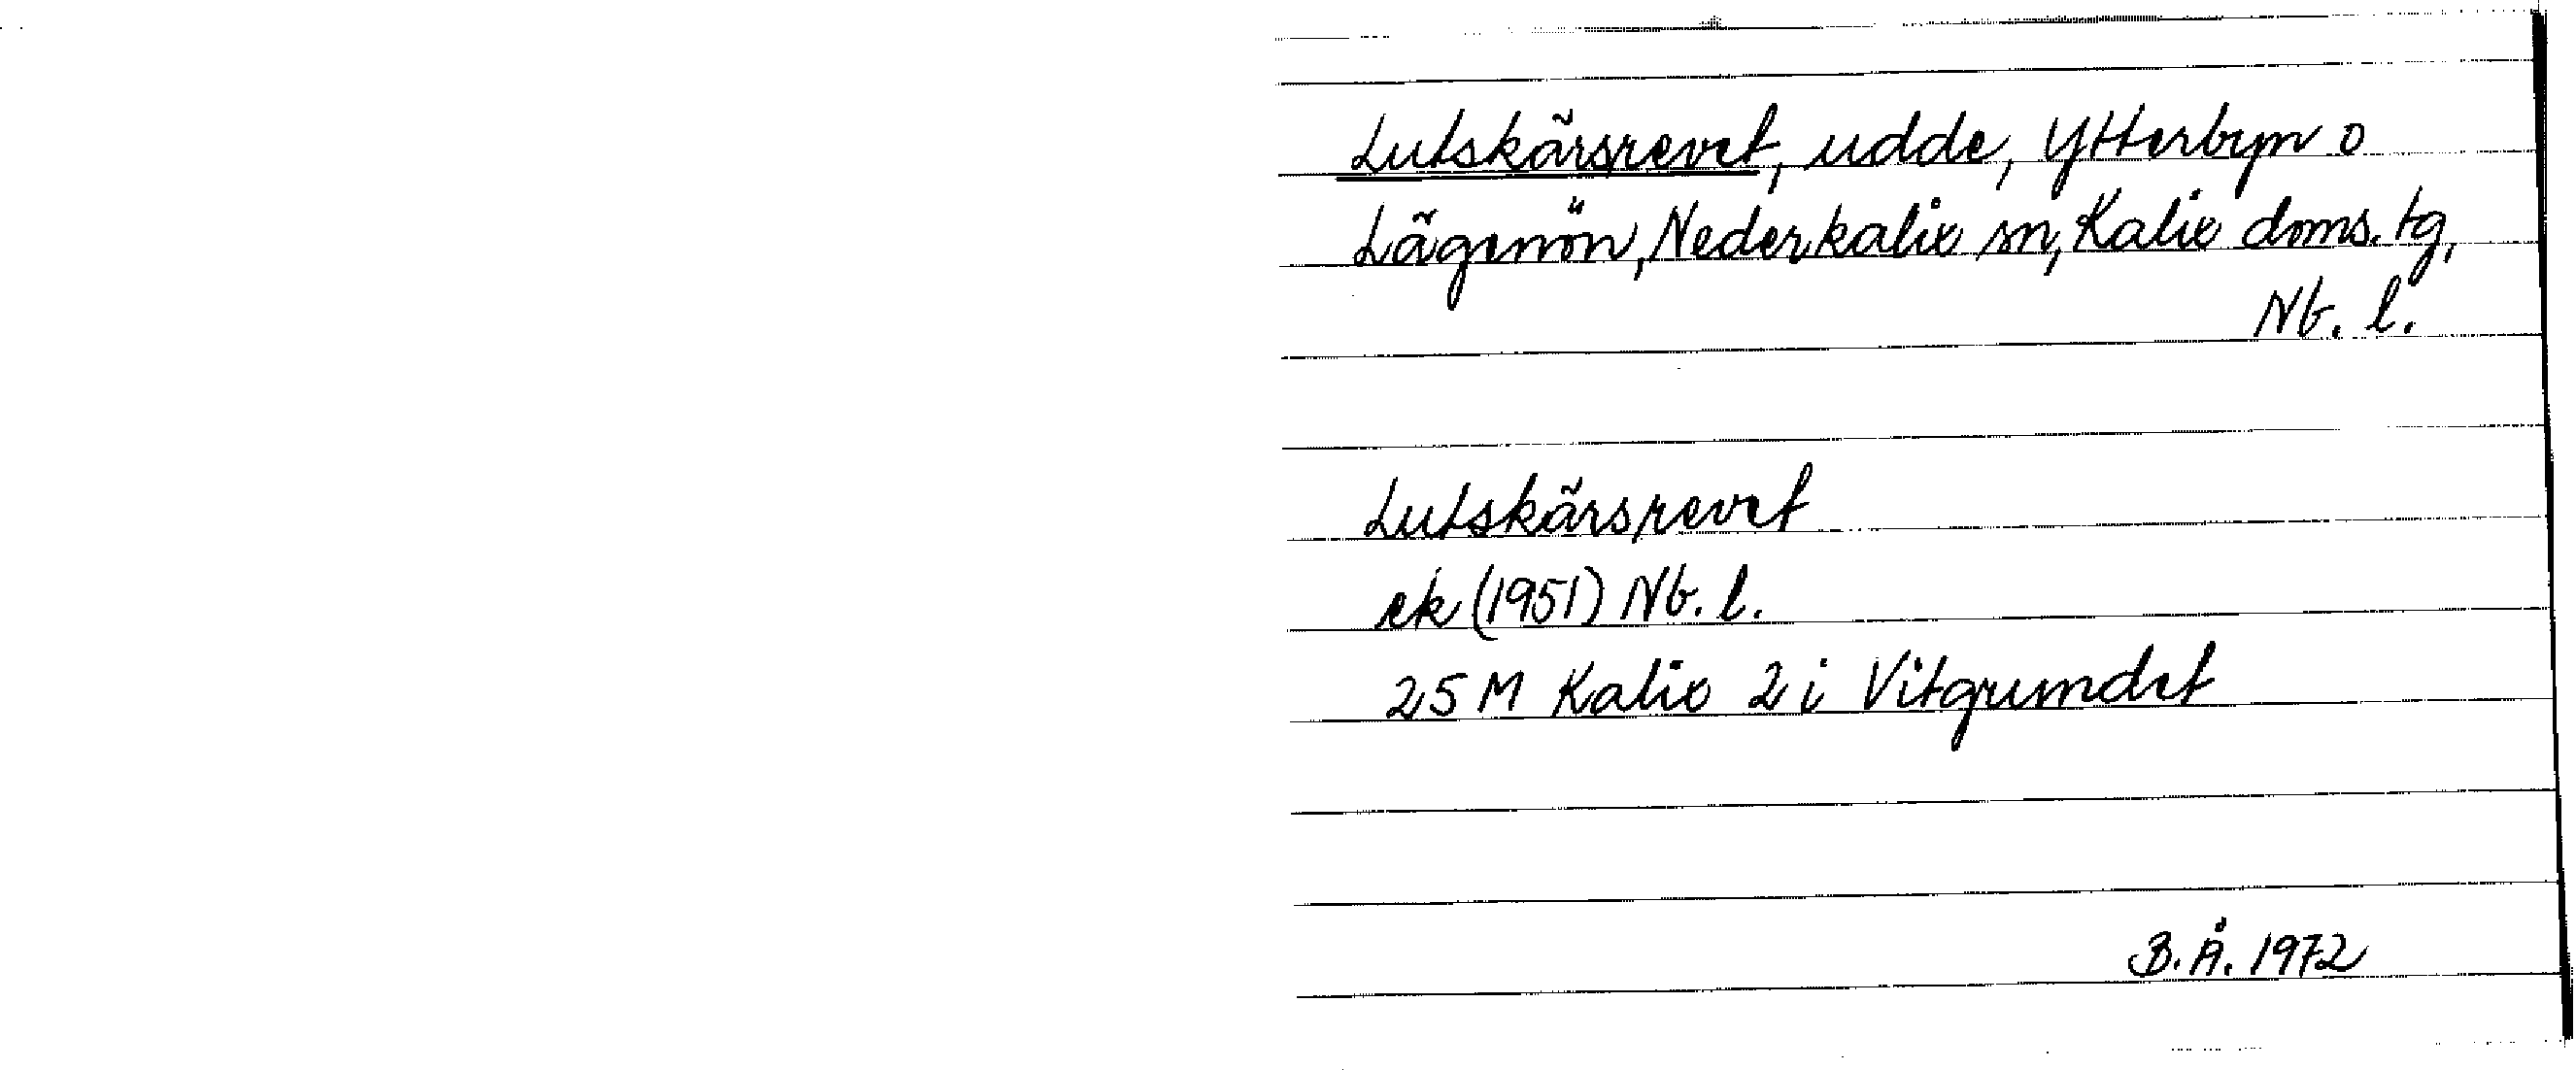 Lutskärsrevet, udde, Ytterbyn o
Lägenön, Nederkalix sn, Kalix doms. tg,
Nb. l.
Lutskärsrevet
ek (1951) Nb. l.
25 M Kalix 2 i Vitgrundet
B. Å. 1972